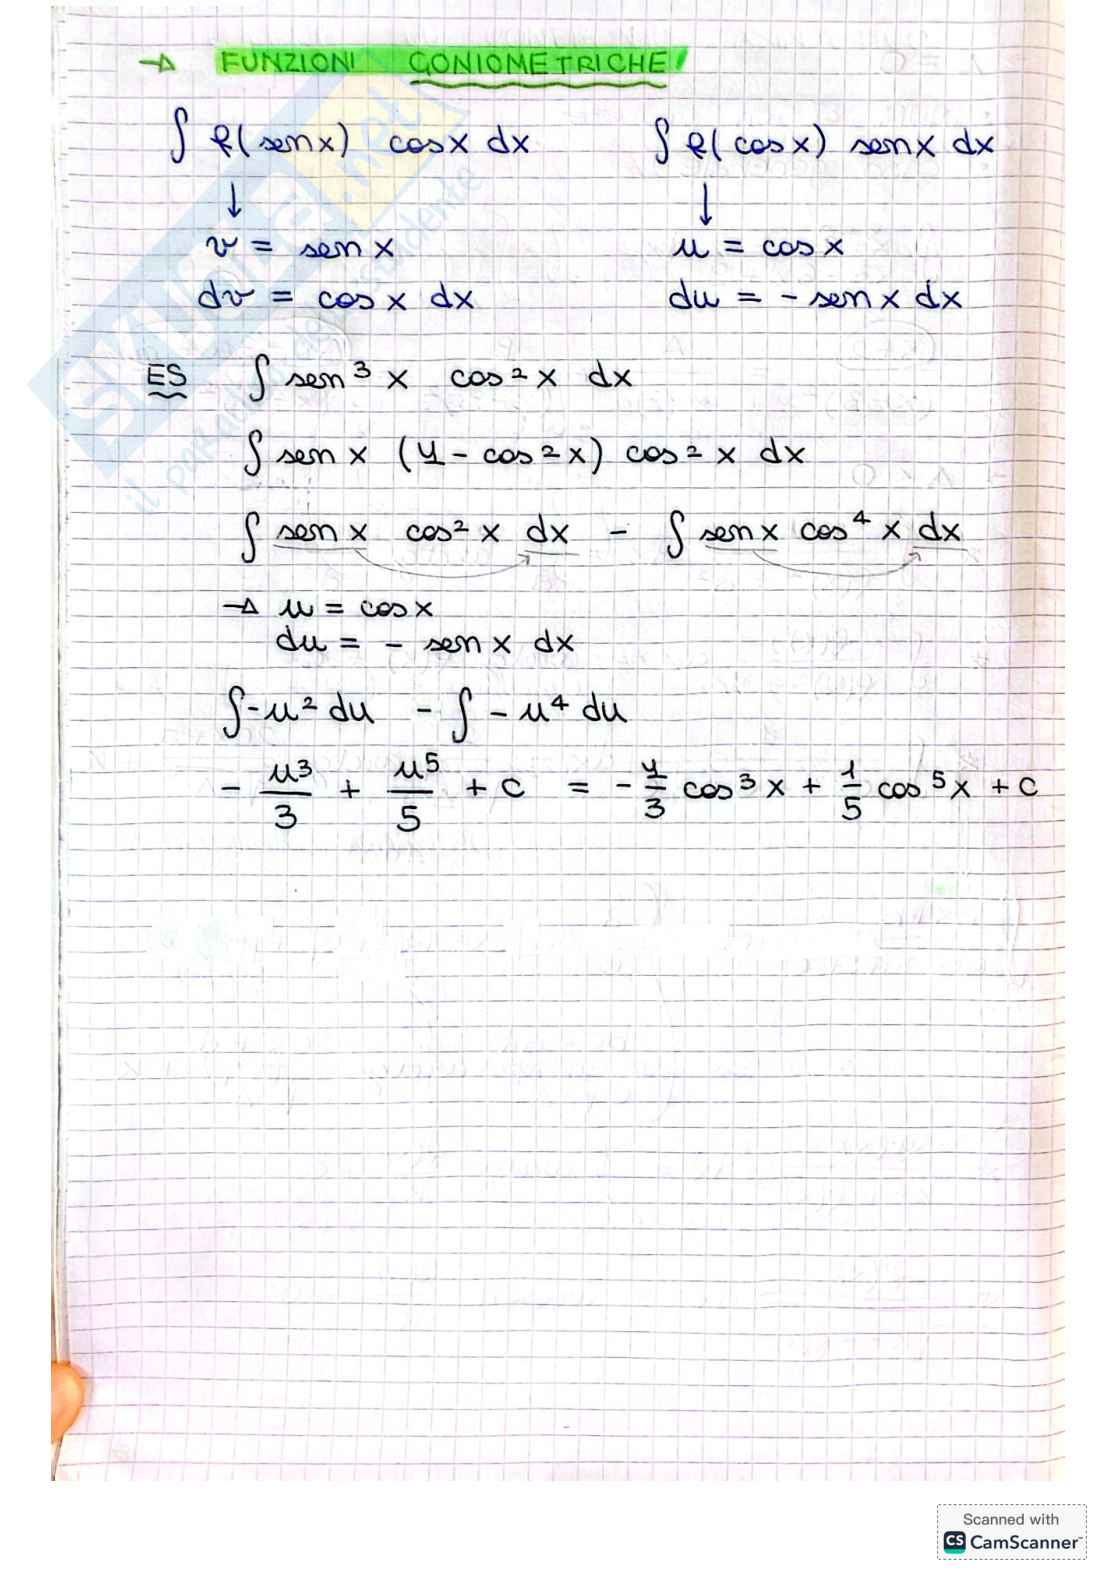 → FUNZIONI GONIOMETRICHE!
∫ f(senx) cosx dx    ∫ f(cosx) senx dx
↓    ↓
v = senx    u = cosx
dv = cosx dx    du = - senx dx
ES ∫ sen³x cos²x dx
∫ senx (1 - cos²x) cos²x dx
∫ senx cos²x dx - ∫ senx cos⁴x dx
→ u = cosx
du = - senx dx
∫ -u² du - ∫ -u⁴ du
- u³/3 + u⁵/5 + c = - 1/3 cos³x + 1/5 cos⁵x + c
Scanned with
CS CamScanner